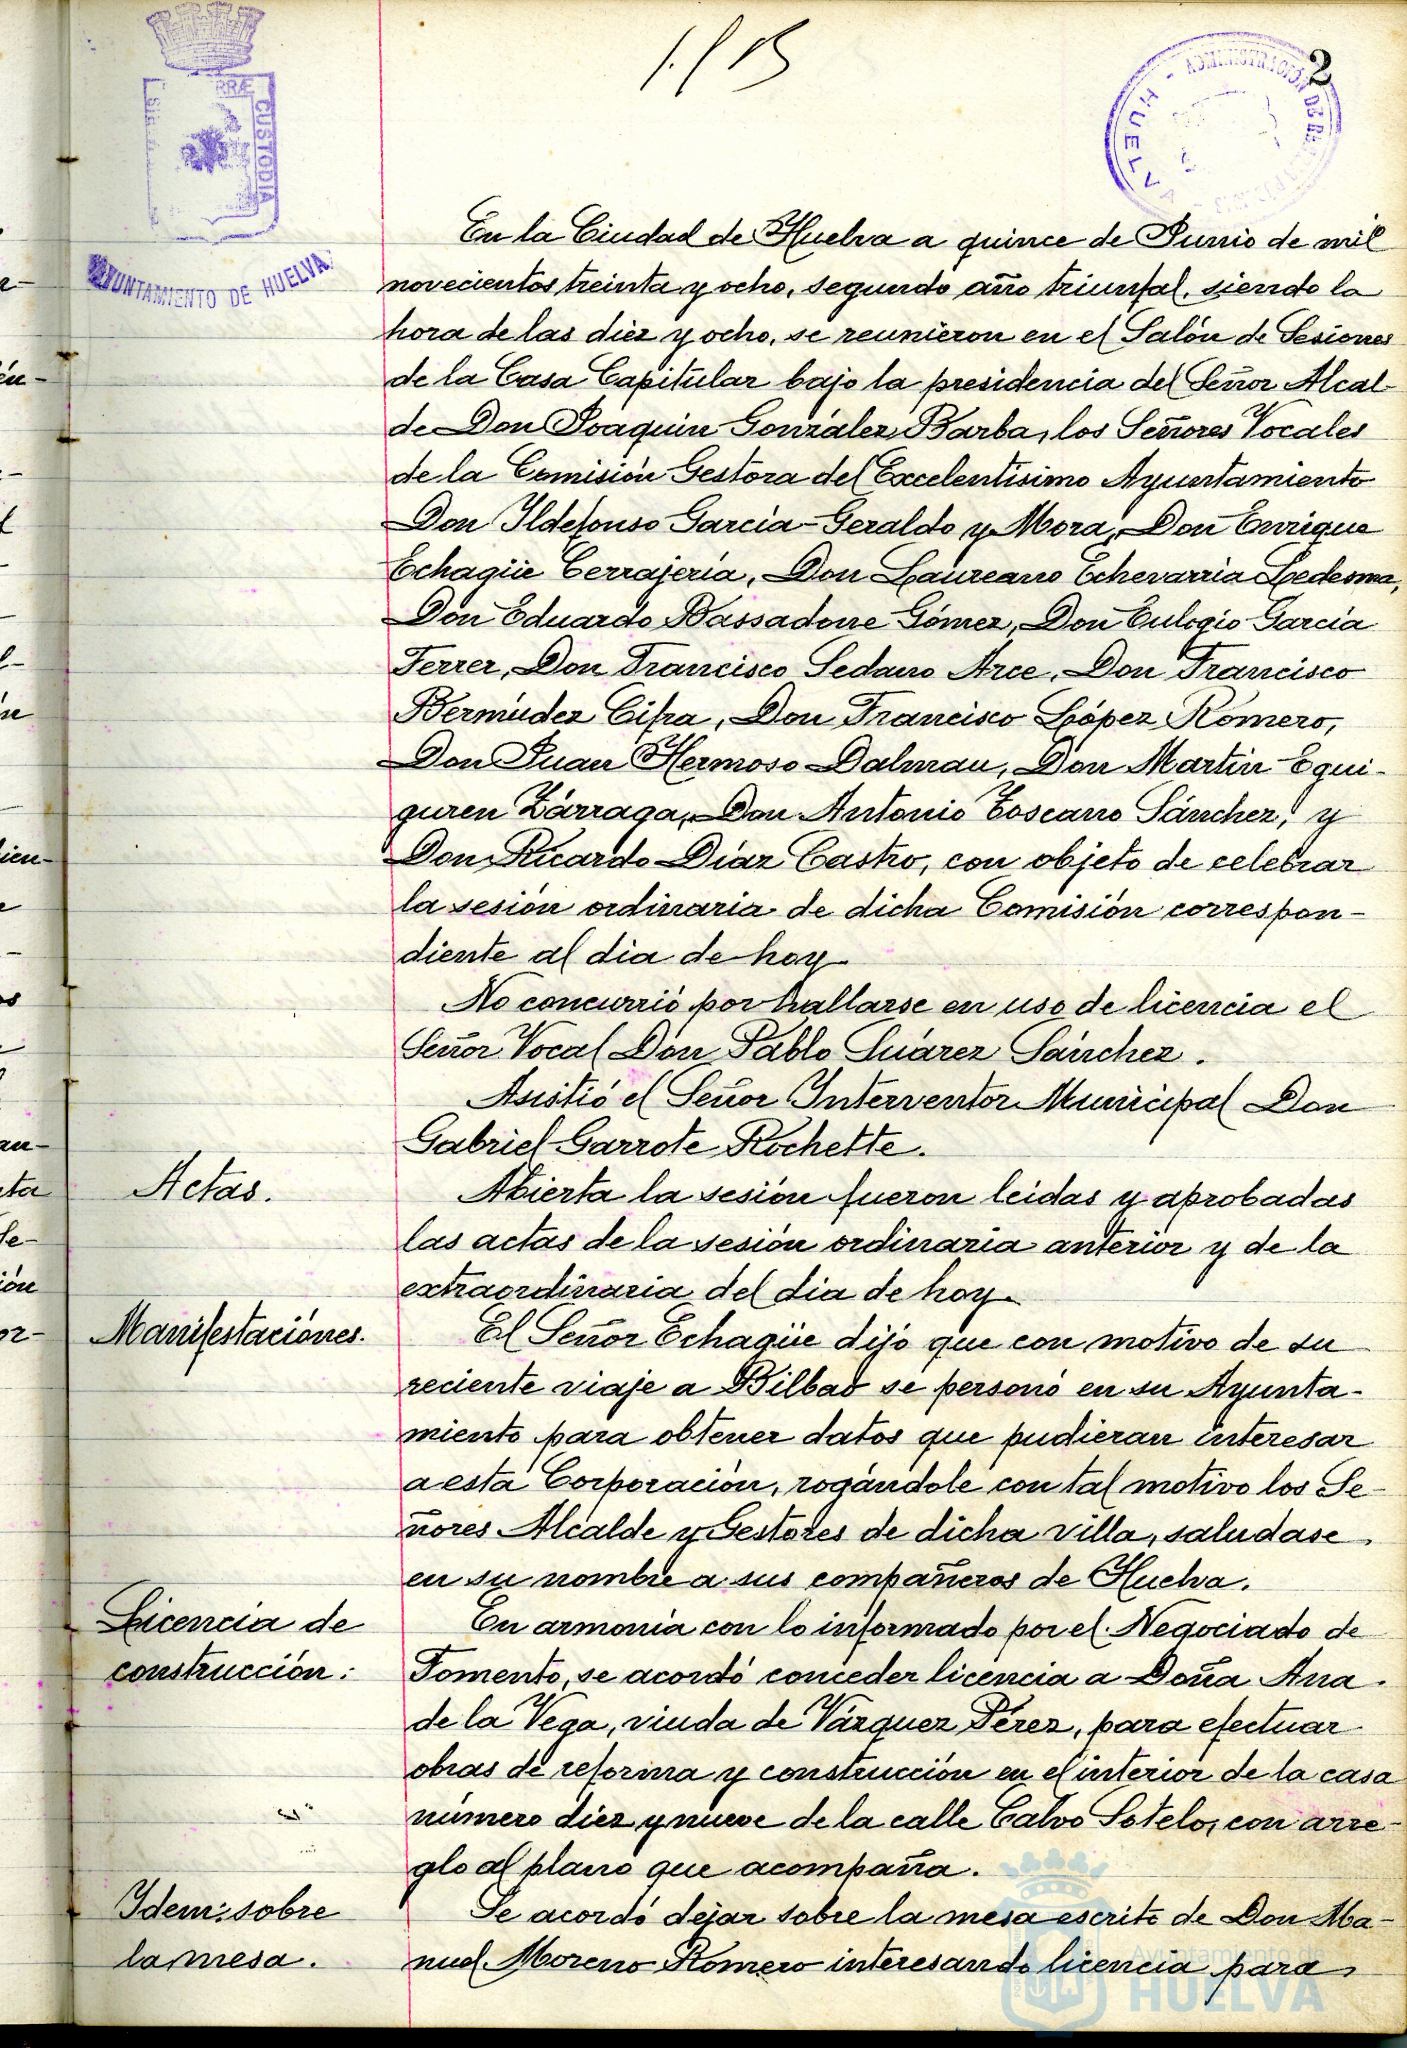 2
RRÆ
CUSTODIA
AYUNTAMIENTO DE HUELVA
ADMINISTRACIÓN DE
HUELVA
En la Ciudad de Huelva a quince de Junio de mil
novecientos treinta y ocho, segundo año triunfal, siendo la
hora de las diez y ocho, se reunieron en el Salón de Sesiones
de la Casa Capitular bajo la presidencia del Señor Alcal-
de Don Joaquin González Barba, los Señores Vocales
de la Comisión Gestora del Excelentísimo Ayuntamiento
Don Ildefonso García-Geraldo y Mora, Don Enrique
Echagüe Cerrajería, Don Laureano Echevarria Ledesma,
Don Eduardo Bassadone Gómez, Don Eulogio García
Ferrer, Don Francisco Sedano Arce, Don Francisco
Bermúdez Cifra, Don Francisco López Romero,
Don Juan Hermoso Dalmau, Don Martin Egui-
guren Zárraga, Don Antonio Toscano Sánchez, y
Don Ricardo Díaz Castro, con objeto de celebrar
la sesión ordinaria de dicha Comisión correspon-
diente al dia de hoy
No concurrió por hallarse en uso de licencia el
Señor Vocal Don Pablo Suárez Sánchez.
Asistió el Señor Interventor Municipal Don
Gabriel Garrote Rochette.
Actas.
Abierta la sesión fueron leidas y aprobadas
las actas de la sesión ordinaria anterior y de la
extraordinaria del dia de hoy.
Manifestaciones.
El Señor Echagüe dijo que con motivo de su
reciente viaje a Bilbao se personó en su Ayunta-
miento para obtener datos que pudieran interesar
a esta Corporación, rogándole con tal motivo los Se-
ñores Alcalde y Gestores de dicha villa, saludase
en su nombre a sus compañeros de Huelva.
Licencia de
construcción:
En armonía con lo informado por el Negociado de
Fomento, se acordó conceder licencia a Doña Ana
de la Vega, viuda de Vázquez Pérez, para efectuar
obras de reforma y construcción en el interior de la casa
número diez y nueve de la calle Calvo Sotelo, con arre-
glo al plano que acompaña.
Idem: sobre
la mesa.
Se acordó dejar sobre la mesa escrito de Don Ma-
nuel Moreno Romero interesando licencia para
Ayuntamiento de
HUELVA